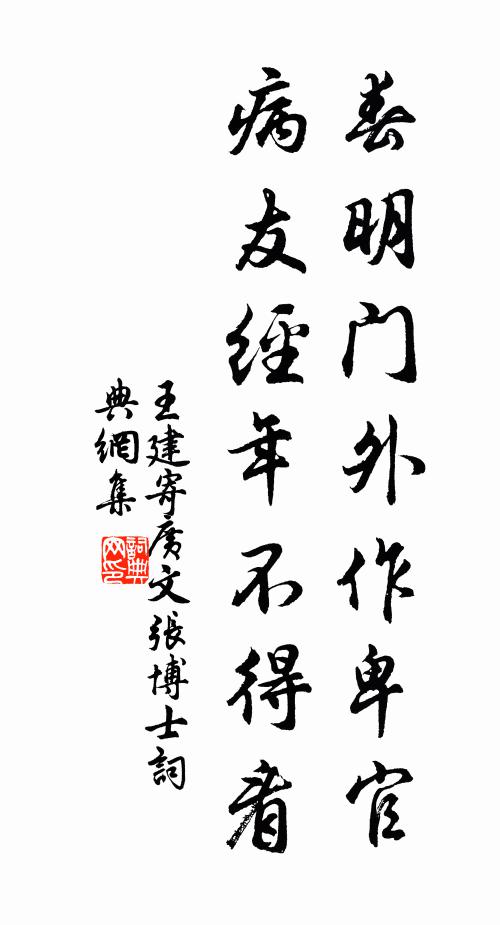 春明门外作卑官
病友經年不得看
王建寄廣文張博士詞
典網集
詞典网印